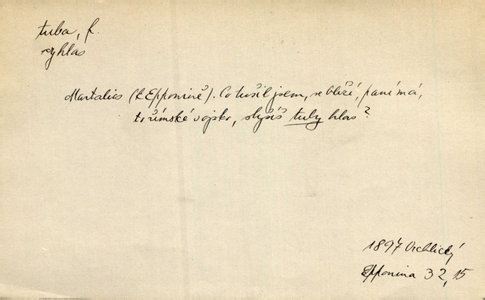 tuba, f.
rg hlas
Martalios (k Epponině). Co tušil jsem, se blíží, paní má,
to římské vojsko, slyšíš tuby hlas?
1897 Vrchlický
Epponina 32, 15